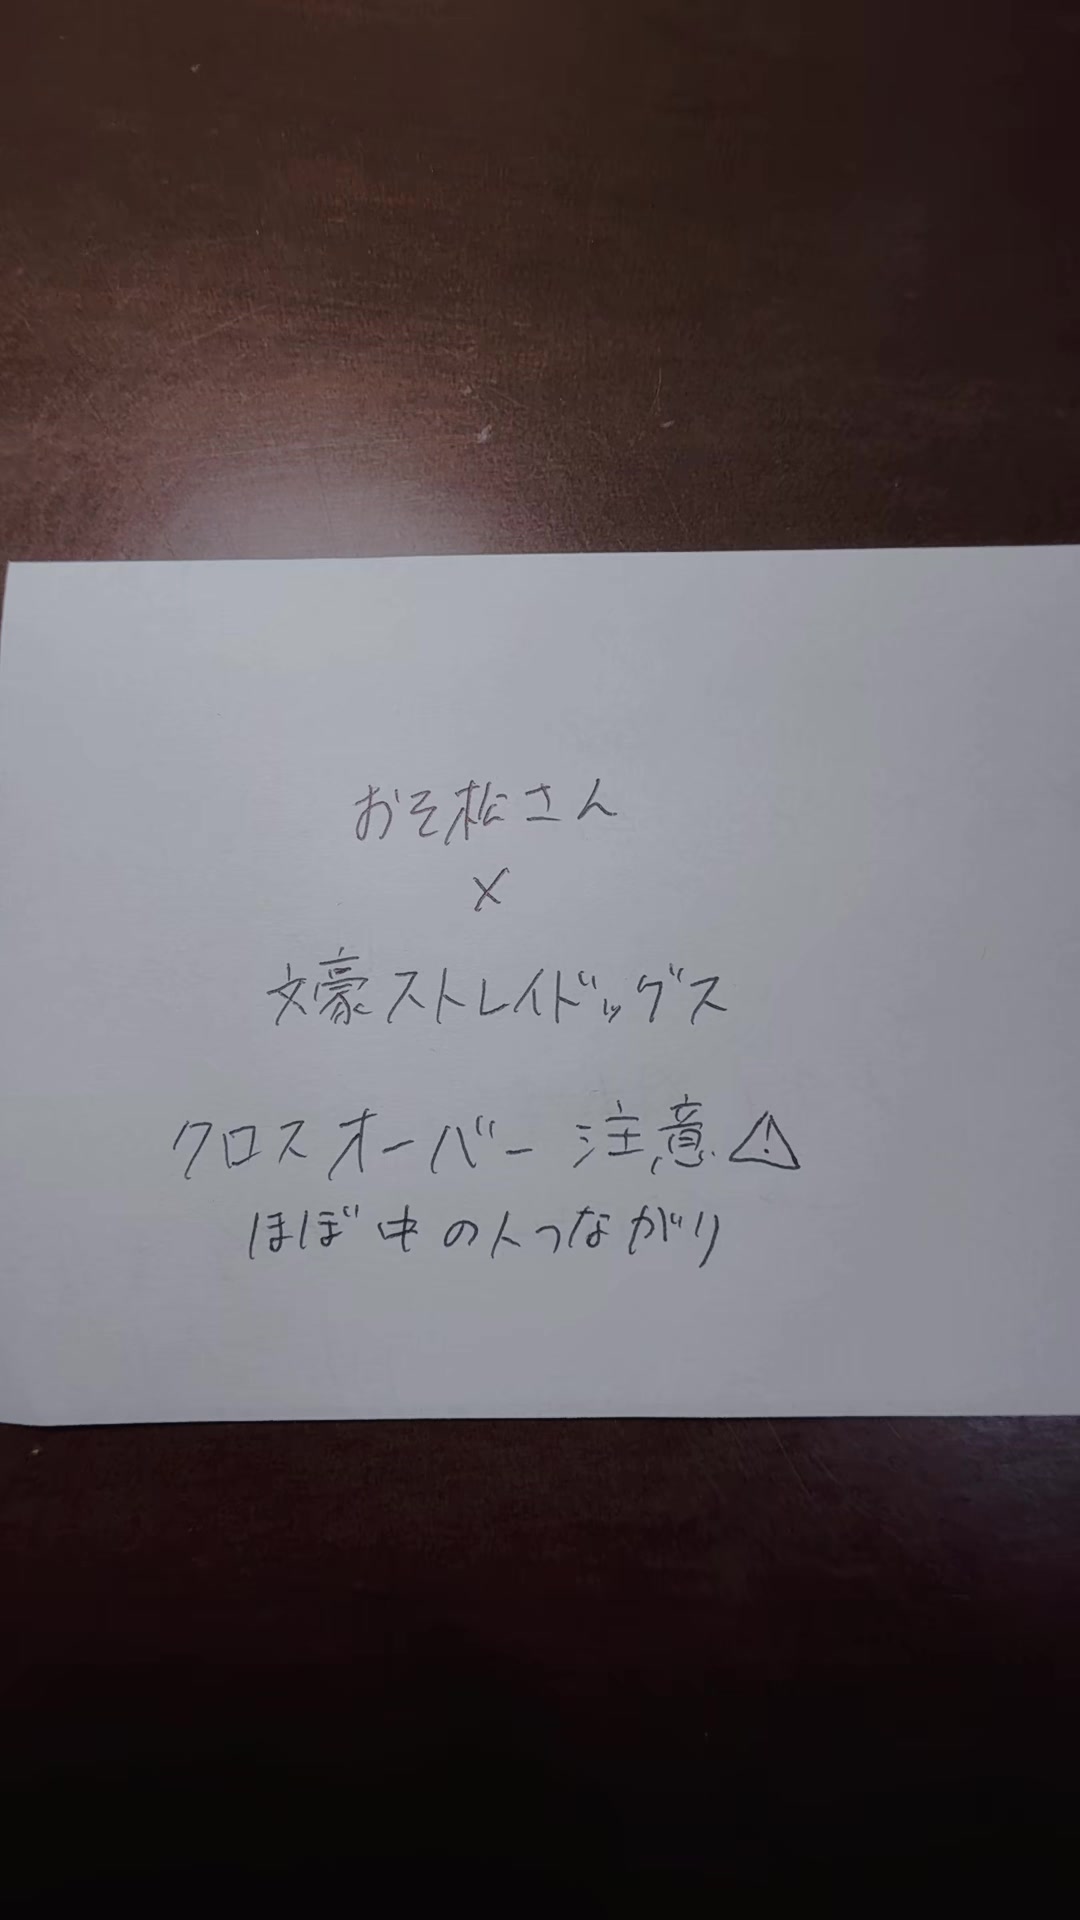 おそ松さん
×
文豪ストレイドッグス
クロスオーバー 注意⚠
ほぼ中の人つながり